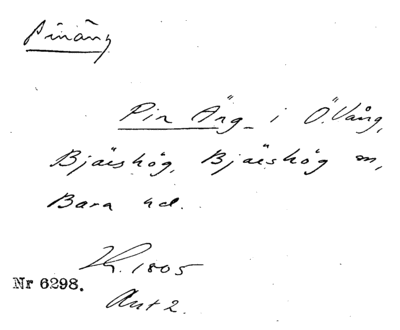 Pinäng
Pin Äng i Ö.Vång,
Bjäeshög, Bjäeshög m,
Bara hd.
1805
Nr 6298.
Akt 2.